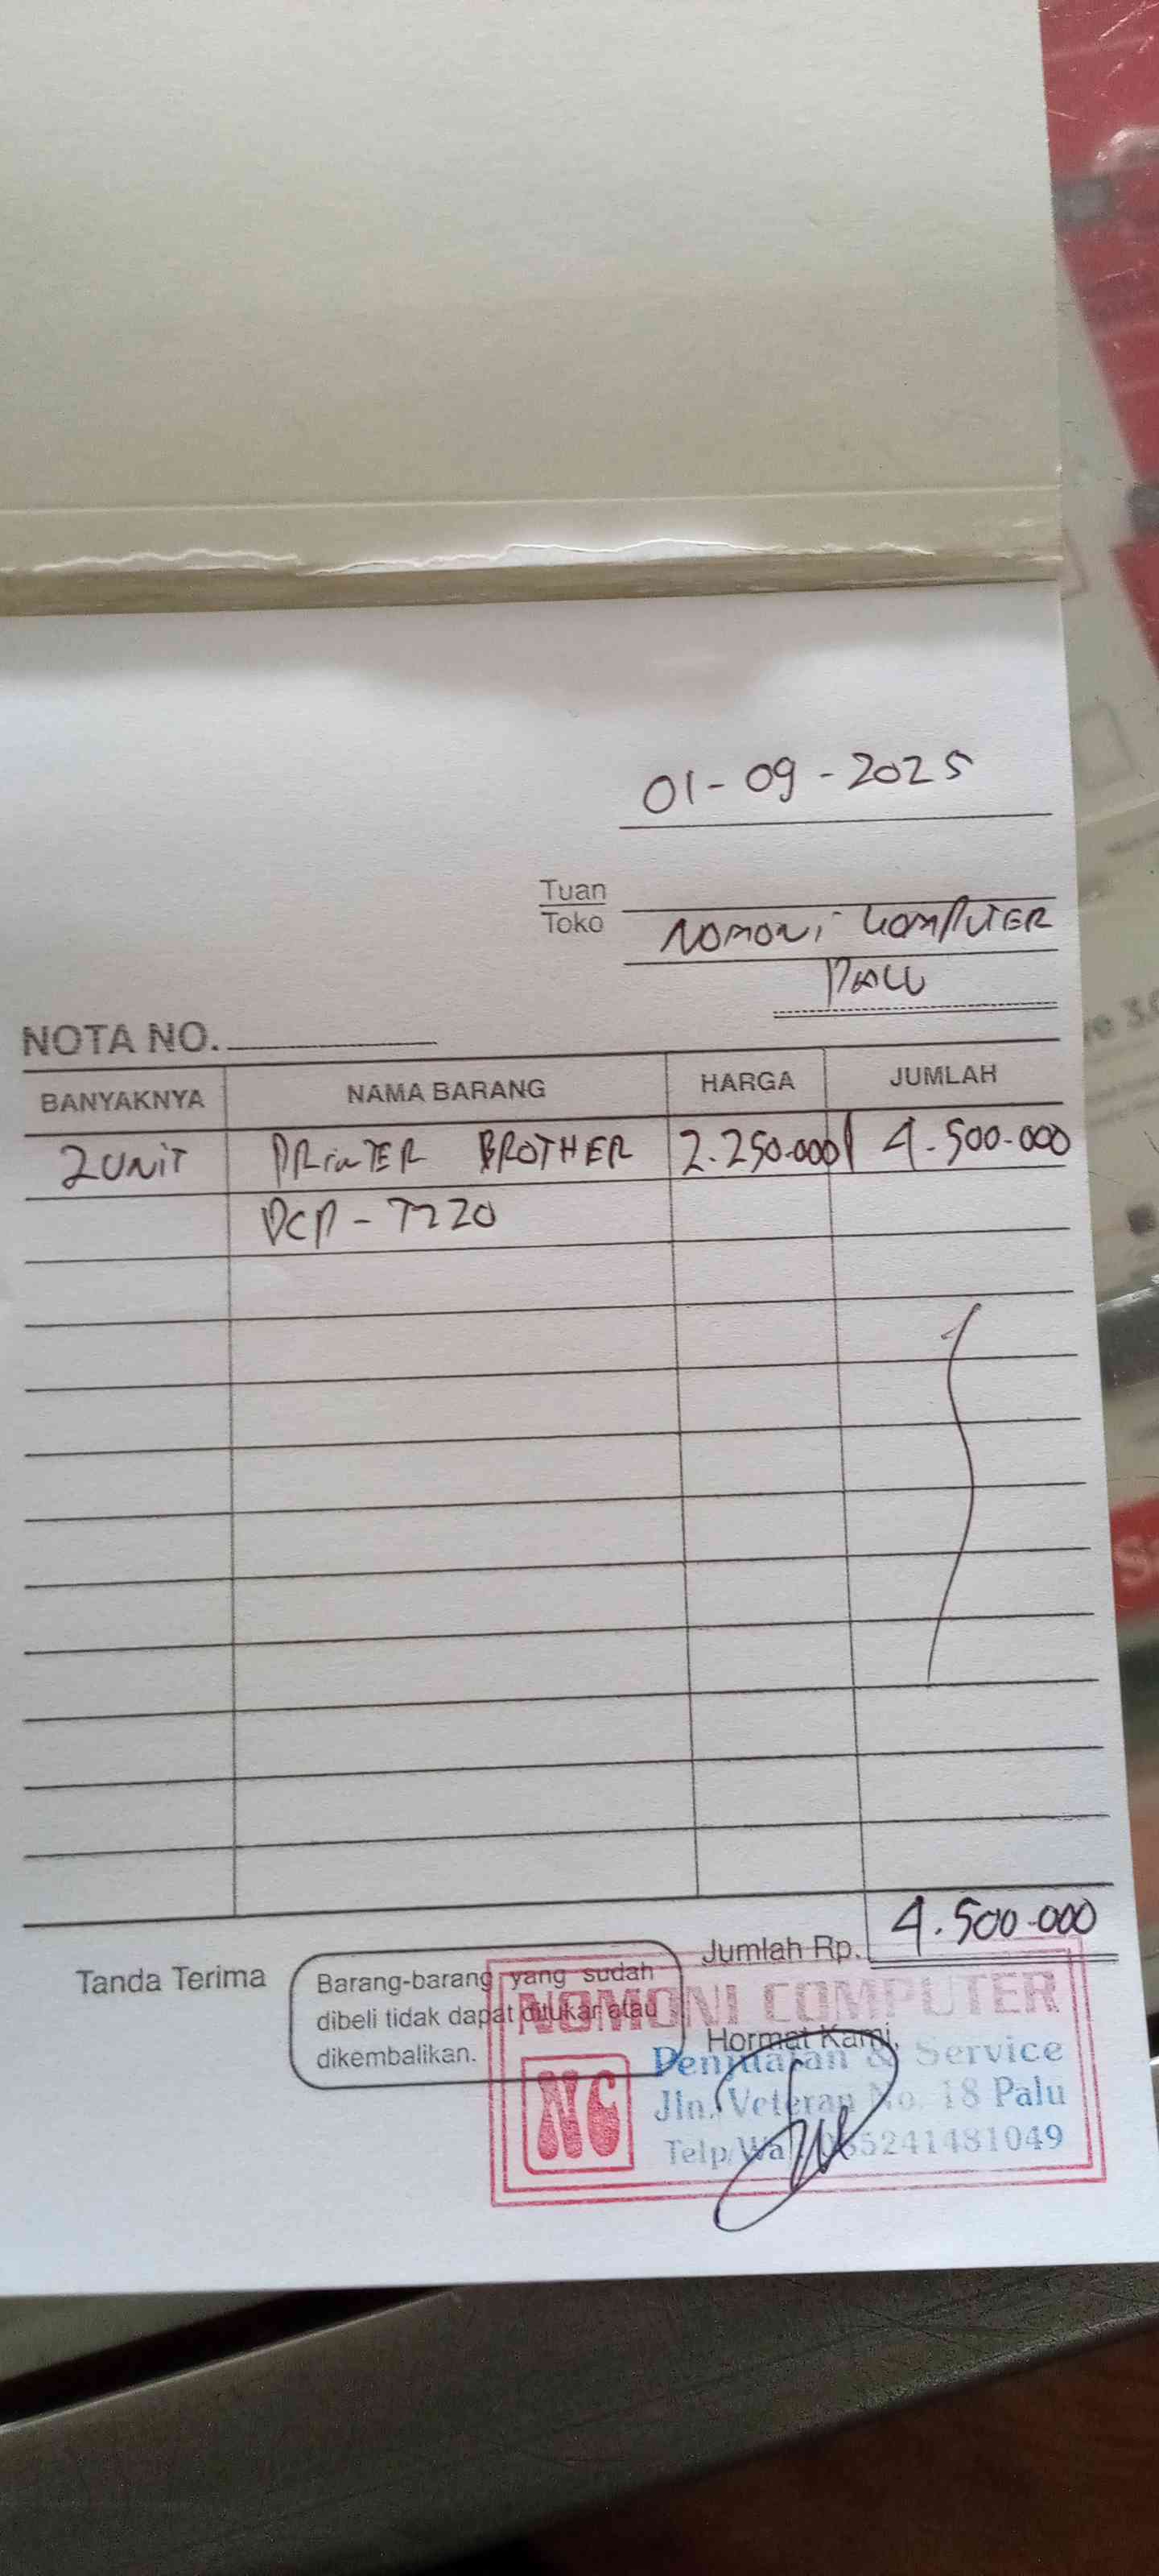 01-09-2025
Tuan
Toko
NOMONi COMPUTER
PALU
NOTA NO.
BANYAKNYA NAMA BARANG HARGA JUMLAH
2 UNiT PRinTER BROTHER 2.250.000 4.500.000
DCP-T220
Jumlah Rp. 4.500.000
Tanda Terima
Barang-barang yang sudah
dibeli tidak dapat ditukar atau
dikembalikan.
Hormat Kami,
NOMONI COMPUTER
NC
Penjualan & Service
Jln. Veteran No. 18 Palu
Telp/Wa 085241481049